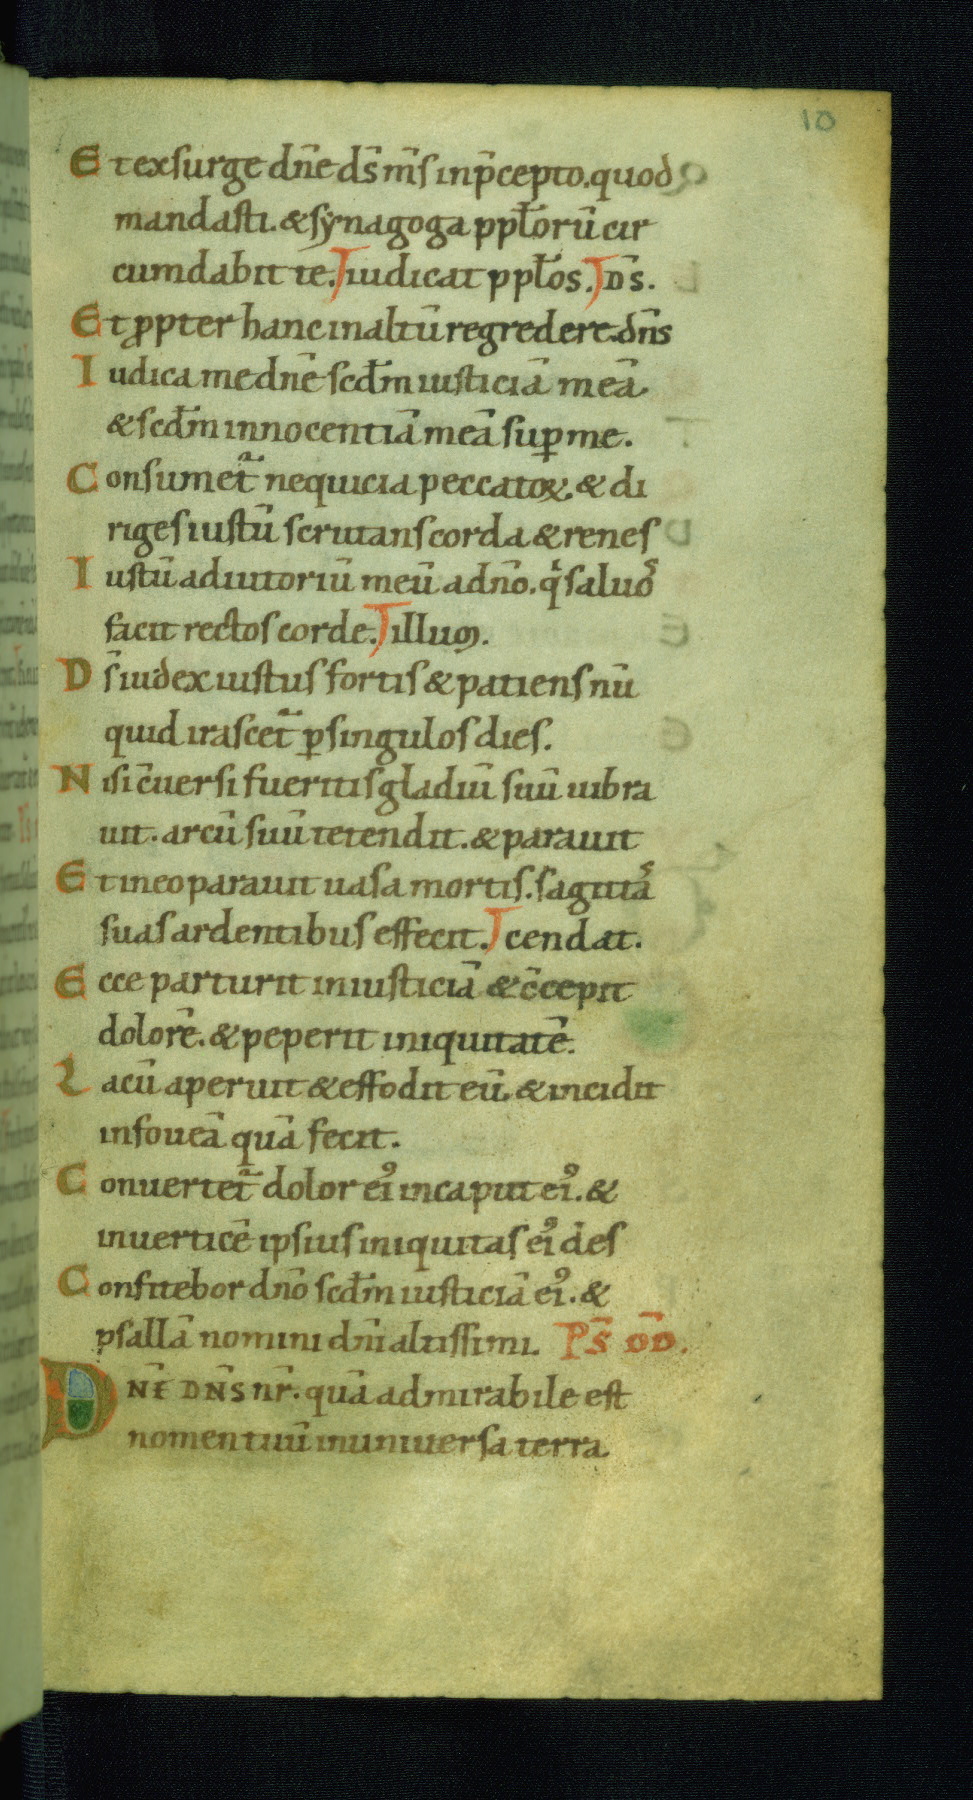 10
Et exsurge dñe ds̄ m̄s inp̄cepto. quod
mandasti. & synagoga pplōrū cir
cumdabit te. iudicat pplōs. DS̄.
Et ꝓpter hanc inaltū regredere. dn̄s
Iudica me dñe scđm iusticiā meā
& scđm innocentiā meā suꝑ me.
Consumet᷑ nequicia peccatoꝝ. & di
riges iustū scrutans corda & renes
Iustū adiutoriū meū adnō. q̇ saluoˢ
facit rectos corde. illum.
Ds̄ iudex iustus fortis & patiens nū
quid irascet᷑ ꝑ singulos dies.
Nisi c̄uersi fueritis gladiū suū uibra
uit. arcū suū tetendit. & parauit
Et ineo parauit uasa mortis. sagittaˢ
suas ardentibus effecit. cendat.
Ecce parturit iniusticiā & c̄cepit
dolorē. & peperit iniquitatē.
Lacū aperuit & effodit eū. & incidit
infoueā quā fecit.
Conuertet᷑ dolor ei᾽ incaput ei᾽. &
inuerticē ipsius iniquitas ei᾽ des
Confitebor dnō scđm iusticiā ei᾽. &
psallā nomini dn̄i altissimi. PS̄ DD̄.
DN̄E DN̄S nr̄. quā admirabile est
nomen tuū inuniuersa terra